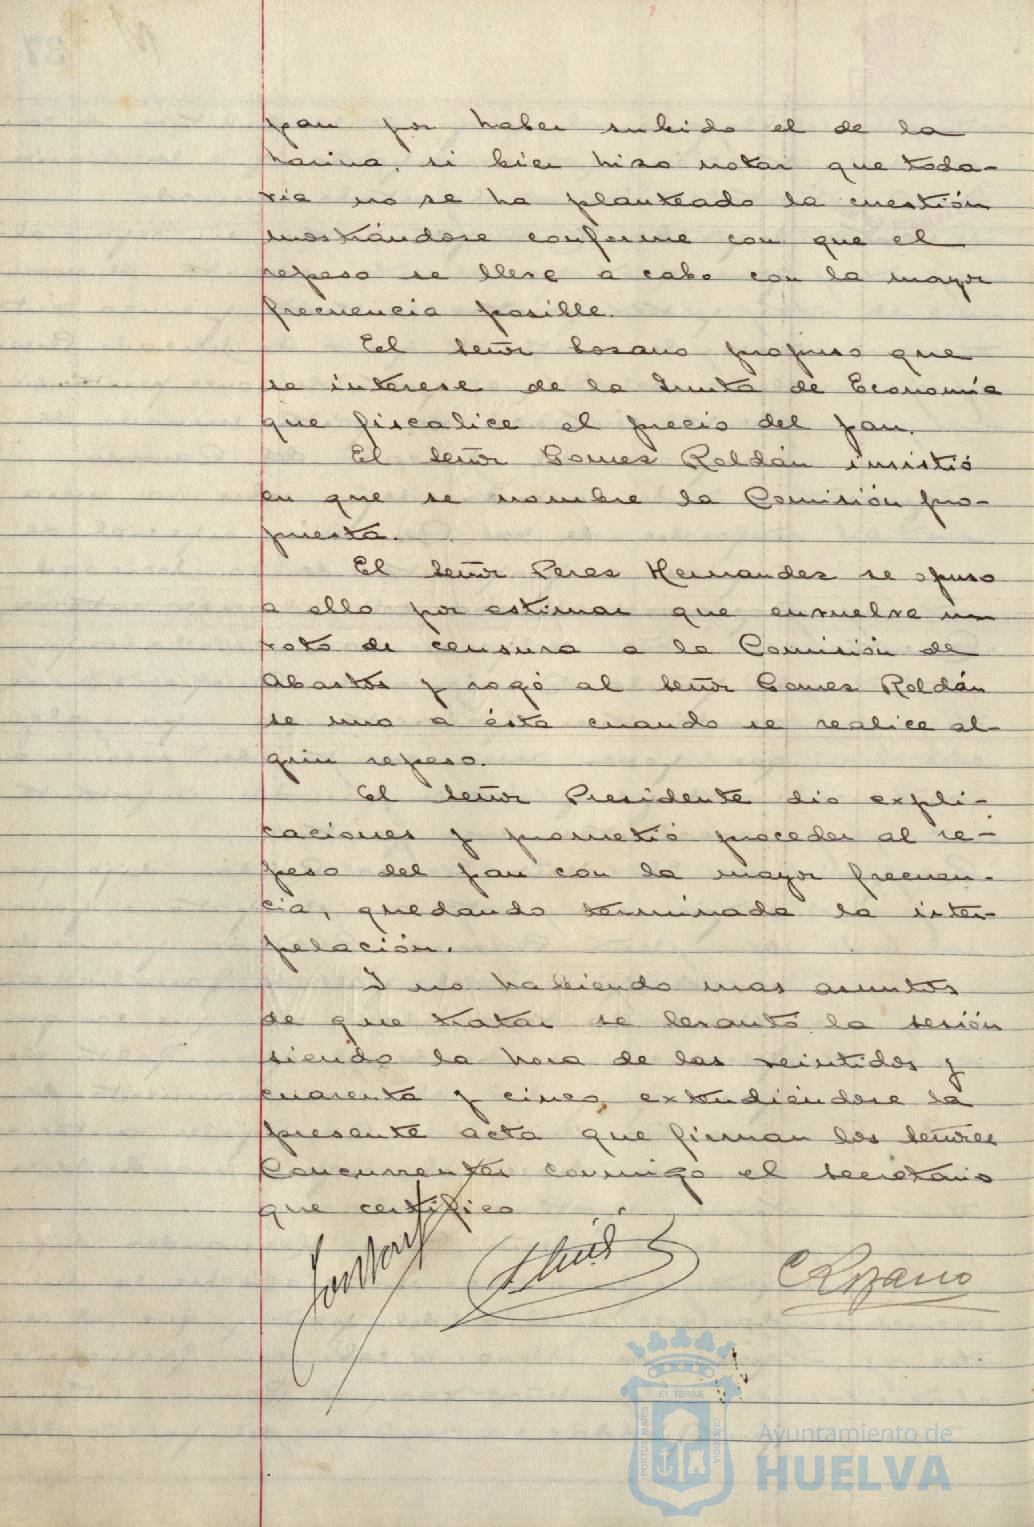 pan por haber subido el de la
harina, si bien hizo notar que toda-
via no se ha planteado la cuestión
mostrándose conforme con que el
repeso se lleve a cabo con la mayor
frecuencia posible.
El Señor Lozano propuso que
se interese de la Junta de Economía
que fiscalice el precio del pan.
El Señor Gomez Roldán insistió
en que se nombre la Comisión pro-
puesta.
El Señor Perez Hernandez se opuso
a ello por estimar que envuelve un
voto de censura a la Comisión de
Abastos y rogó al Señor Gomez Roldán
se una a ésta cuando se realice al-
gún repeso.
El Señor Presidente dio expli-
caciones y prometió proceder al re-
peso del pan con la mayor frecuen-
cia, quedando terminada la inter-
pelación.
Y no habiendo mas asuntos
de que tratar se levantó la sesión
siendo la hora de las veintidos y
cuarenta y cinco extendiéndose la
presente acta que firman los Señores
Concurrentes conmigo el Secretario
que certifico
C Lozano
PORTUS MARIS
ET TERRÆ
CUSTODIA
Ayuntamiento de
HUELVA